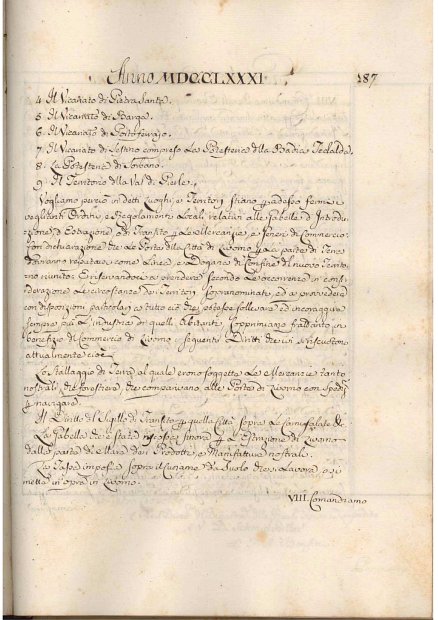 Anno MDCCLXXXI 187
4. Il Vicariato di Pietra Santa.
5. Il Vicariato di Barga.
6. Il Vicariato di Portoferrajo.
7. Il Vicariato di Sestino compreso La Potesteria della Badia Tedalda.
8. La Potesteria di Sorbano.
9. Il Territorio della Val di Pierle.
Vogliamo perciò in detti Luoghi, e Territorj stiano per adesso fermi, e
veglianti Ordini, e Regolamenti Locali relativi alle Gabelle d'Introdu-
zione, d'Estrazione, e di Transito per Le Mercanzie, e Generi di Commercio
con dichiarazione che Le Porte della Città di Livorno per La parte di Terra
dovranno reputarsi come Linea, e Dogane di Confine del nuovo Territo-
rio riunito; E riservandoci a prendere secondo Le occorrenze in consi-
derazione Le circostanze dei Territorj sopranominati, ed a provvedere
con disposizioni particolari a tutto ciò che potesse sollevare, ed incoraggiare
sempre più L'industria di quelli abitanti, Sopprimiamo frattanto, in
benefizio del Commercio di Livorno i seguenti Diritti che vi si riscuotono
attualmente cioè
Lo Stallaggio di Terra al quale erono soggette Le Mercanzie tanto
nostrali, che forestiere, che comparivano alle Porte di Livorno con Sped.
per navigare.
Il Diritto del Sigillo di Transito per quella Città sopra Le
La Gabella che è stata riscossa sinora per L'Estrazione di Livorno
dalla parte di Mare dei Prodotti, e Manifatture nostrali.
La Tassa imposta sopra il Cuojame da Suolo che si Lavora, o si
metta in opra in Livorno.
VIII. Comandiamo